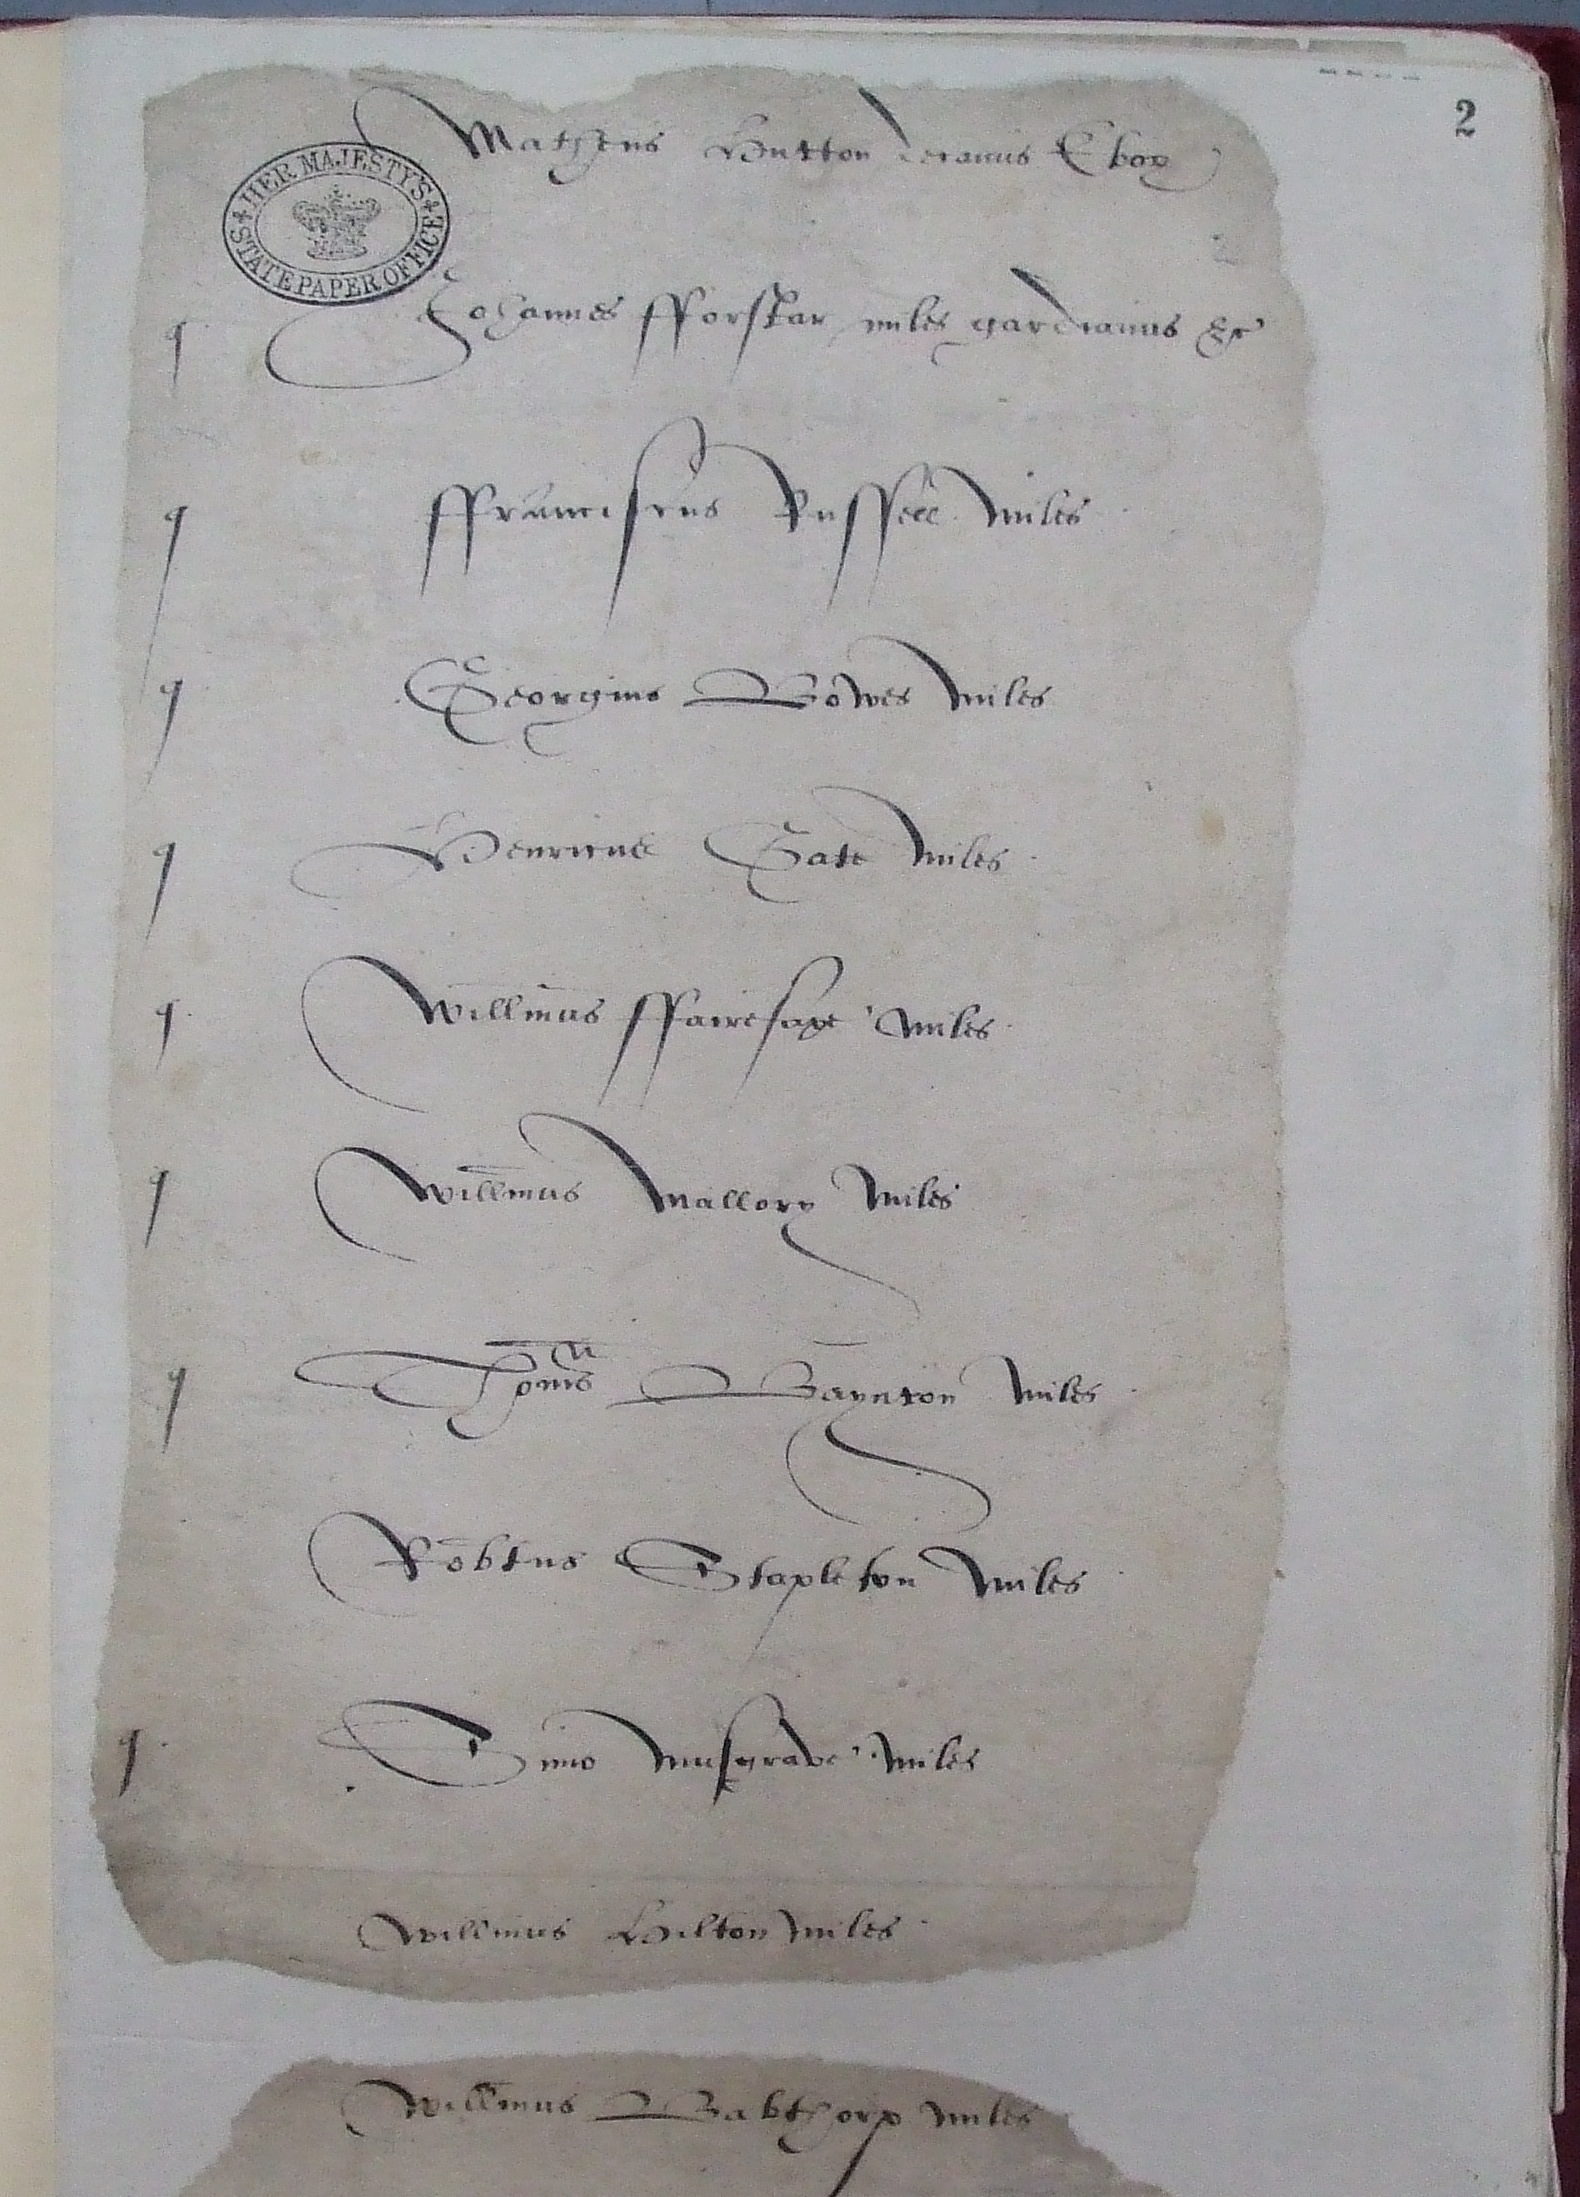 2
Matheus Hutton decanus Ebor
HER MAJESTY'S STATE PAPER OFFICE
q Johannes fforster miles gardianus &c
q ffranciscus Russell miles
q Georgius Bowes miles
q Henricus Gate miles
q Willmus ffairefax miles
q Willmus Mallory miles
q Thomas Baynton miles
Robtus Stapleton miles
q Simo Musgrave miles
Willmus Hilton miles
Willmus Babthorp miles